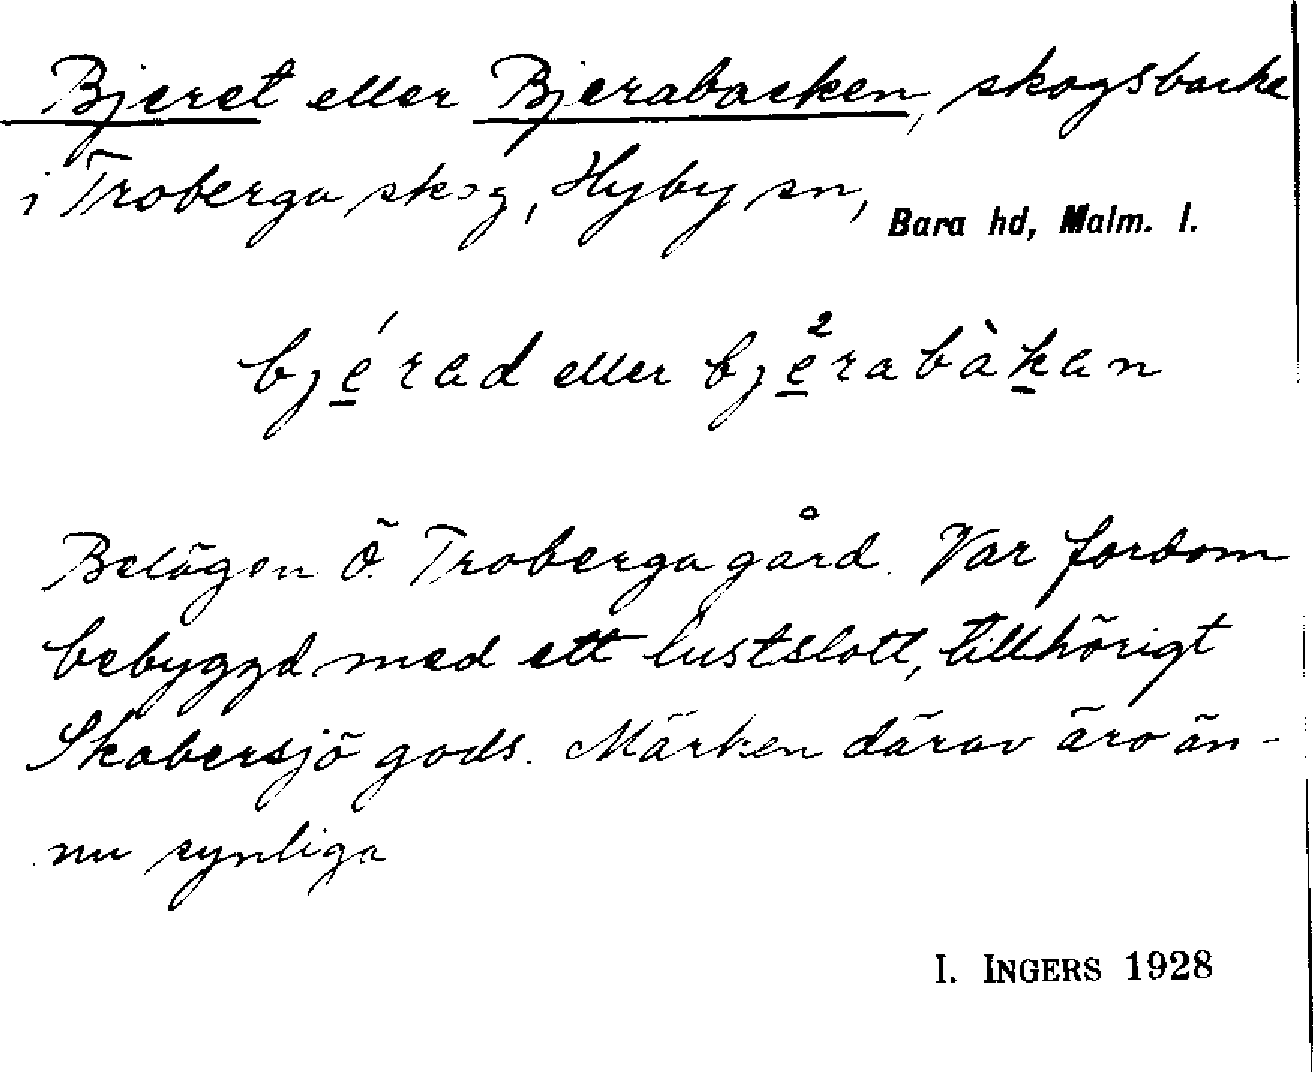 Bjeret eller Bjerabacken, skogsbacke
i Troberga skog, Hyby sn, Bara hd, Malm. l.
bjérad eller bje̊rabàkan
Belägen Ö. Troberga gård. Var fordom
bebyggd med ett lustslott, tillhörigt
Skabersjö gods. Märken därav äro än-
nu synliga
I. INGERS 1928